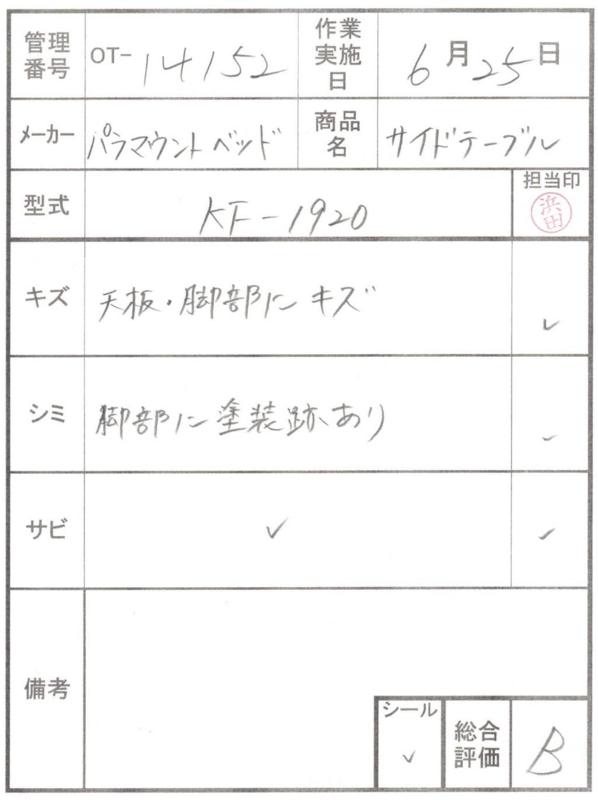 管理番号 OT-14152 作業実施日 6月25日
メーカー パラマウントベッド 商品名 サイドテーブル
型式 KF-1920 担当印 浜田
キズ 天板・脚部にキズ ✓
シミ 脚部に塗装跡あり ✓
サビ ✓ ✓
備考
シール ✓ 総合評価 B